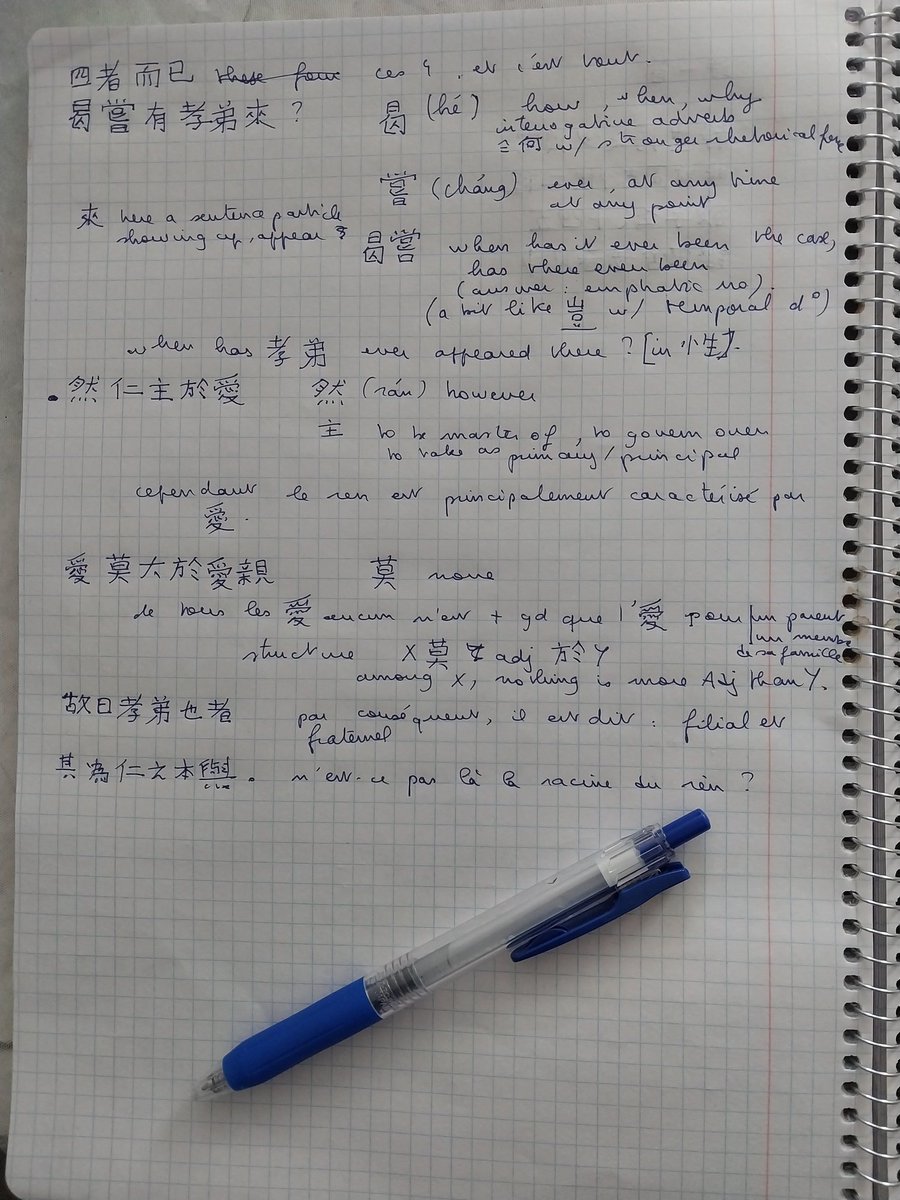 四者而已 these four ces 4, et c'est tout.
曷嘗有孝弟來? 曷 (hé) how, when, why
interrogative adverb
≘ 何 w/ stronger rhetorical force
嘗 (cháng) ever, at any time
at any point
來 here a sentence particle
showing up, appear
曷嘗 when has it ever been the case,
has there ever been
(answer: emphatic no).
(a bit like 豈 w/ temporal d°)
when has 孝弟 ever appeared there? [in 性].
• 然仁主於愛 然 (rán) however
主 to be master of, to govern over
to take as primary/principal
cependant le ren est principalement caractérisé par
愛.
愛莫大於愛親 莫 none
de tous les 愛 aucun n'est + gd que l'愛 pour un parent
un membre
de sa famille
structure X莫 adj 於Y
among X, nothing is more Adj than Y.
故曰孝弟也者 par conséquent, il est dit: filial et
fraternel
其為仁之本與. n'est-ce pas là la racine du rén?